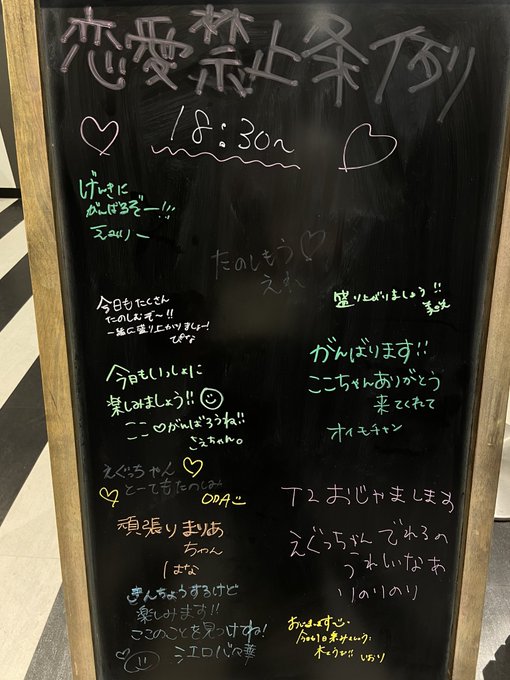 恋愛禁止条例
18:30~
げんきに
がんばるぞー!!!
たのしもう
えれ
今日もたくさん
たのしむぞ〜!!
一緒に盛り上がりましょー!
ぴな
盛り上がりましょう!!
今日もいっしょに
楽しみましょう!!
ここ♡がんばろうね!!
さえちゃん。
がんばります!!
ここちゃんありがとう
来てくれて
オイモチャン
えぐっちゃん
とーてもたのしみ
ODA
頑張りまりあ
ちゃん
はな
T2おじゃまします
えぐっちゃんでれるの
うれしいなぁ
りのりのり
きんちょうするけど
楽しみます!!
ここのことを見つけてね!
しおり